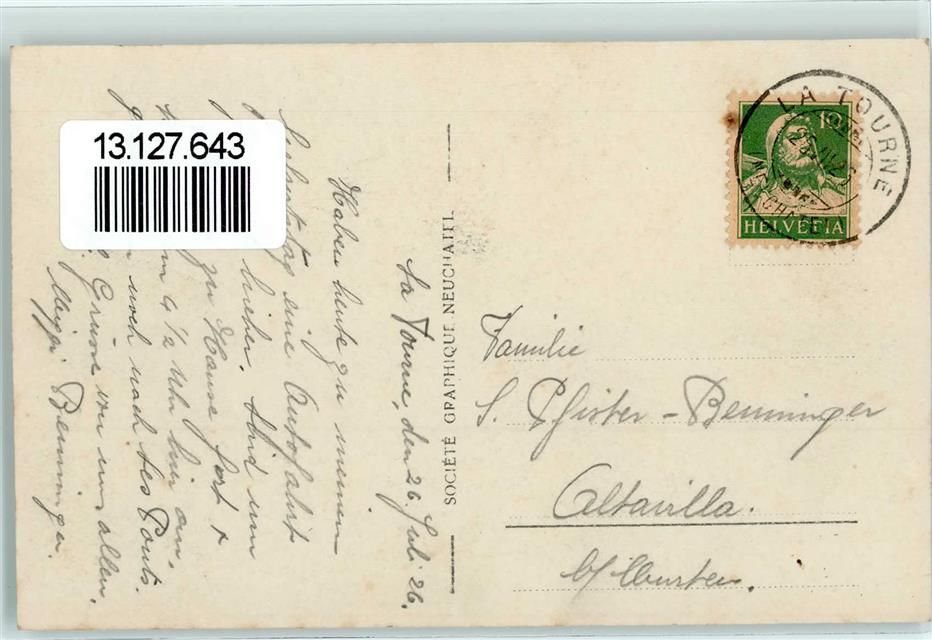 13.127.643
La Tourne, den 26. Juli 26.
Haben heute zu meinem
Geburtstag eine Autofahrt
hieher. Sind um
zu Hause fort &
um 4 ½ Uhr hier an.
noch nach Les Ponts.
Grüsse von uns allen,
Benninger.
SOCIÉTÉ GRAPHIQUE NEUCHATEL
LA TOURNE
NEUCHATEL
10
HELVETIA
Familie
S. Pfister-Benninger
Altavilla.
b/Murten.